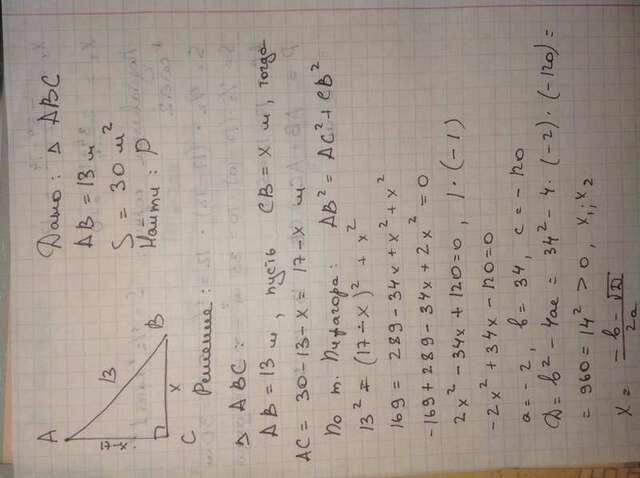 Дано: Δ ABC
AB = 13 м
S = 30 м²
Найти: P
A
13
B
x
C
Решение:
Δ ABC:
AB = 13 м, пусть CB = x м, тогда
AC = 30-13-x = 17-x м
По т. Пифагора: AB² = AC² + CB²
13² = (17-x)² + x²
169 = 289 - 34x + x² + x²
-169 + 289 - 34x + 2x² = 0
2x² - 34x + 120 = 0, | · (-1)
-2x² + 34x - 120 = 0
a = -2, b = 34, c = -120
D = b² - 4ac = 34² - 4 · (-2) · (-120) =
= 960 = 14² > 0, x₁, x₂
x = -b - √D / 2a